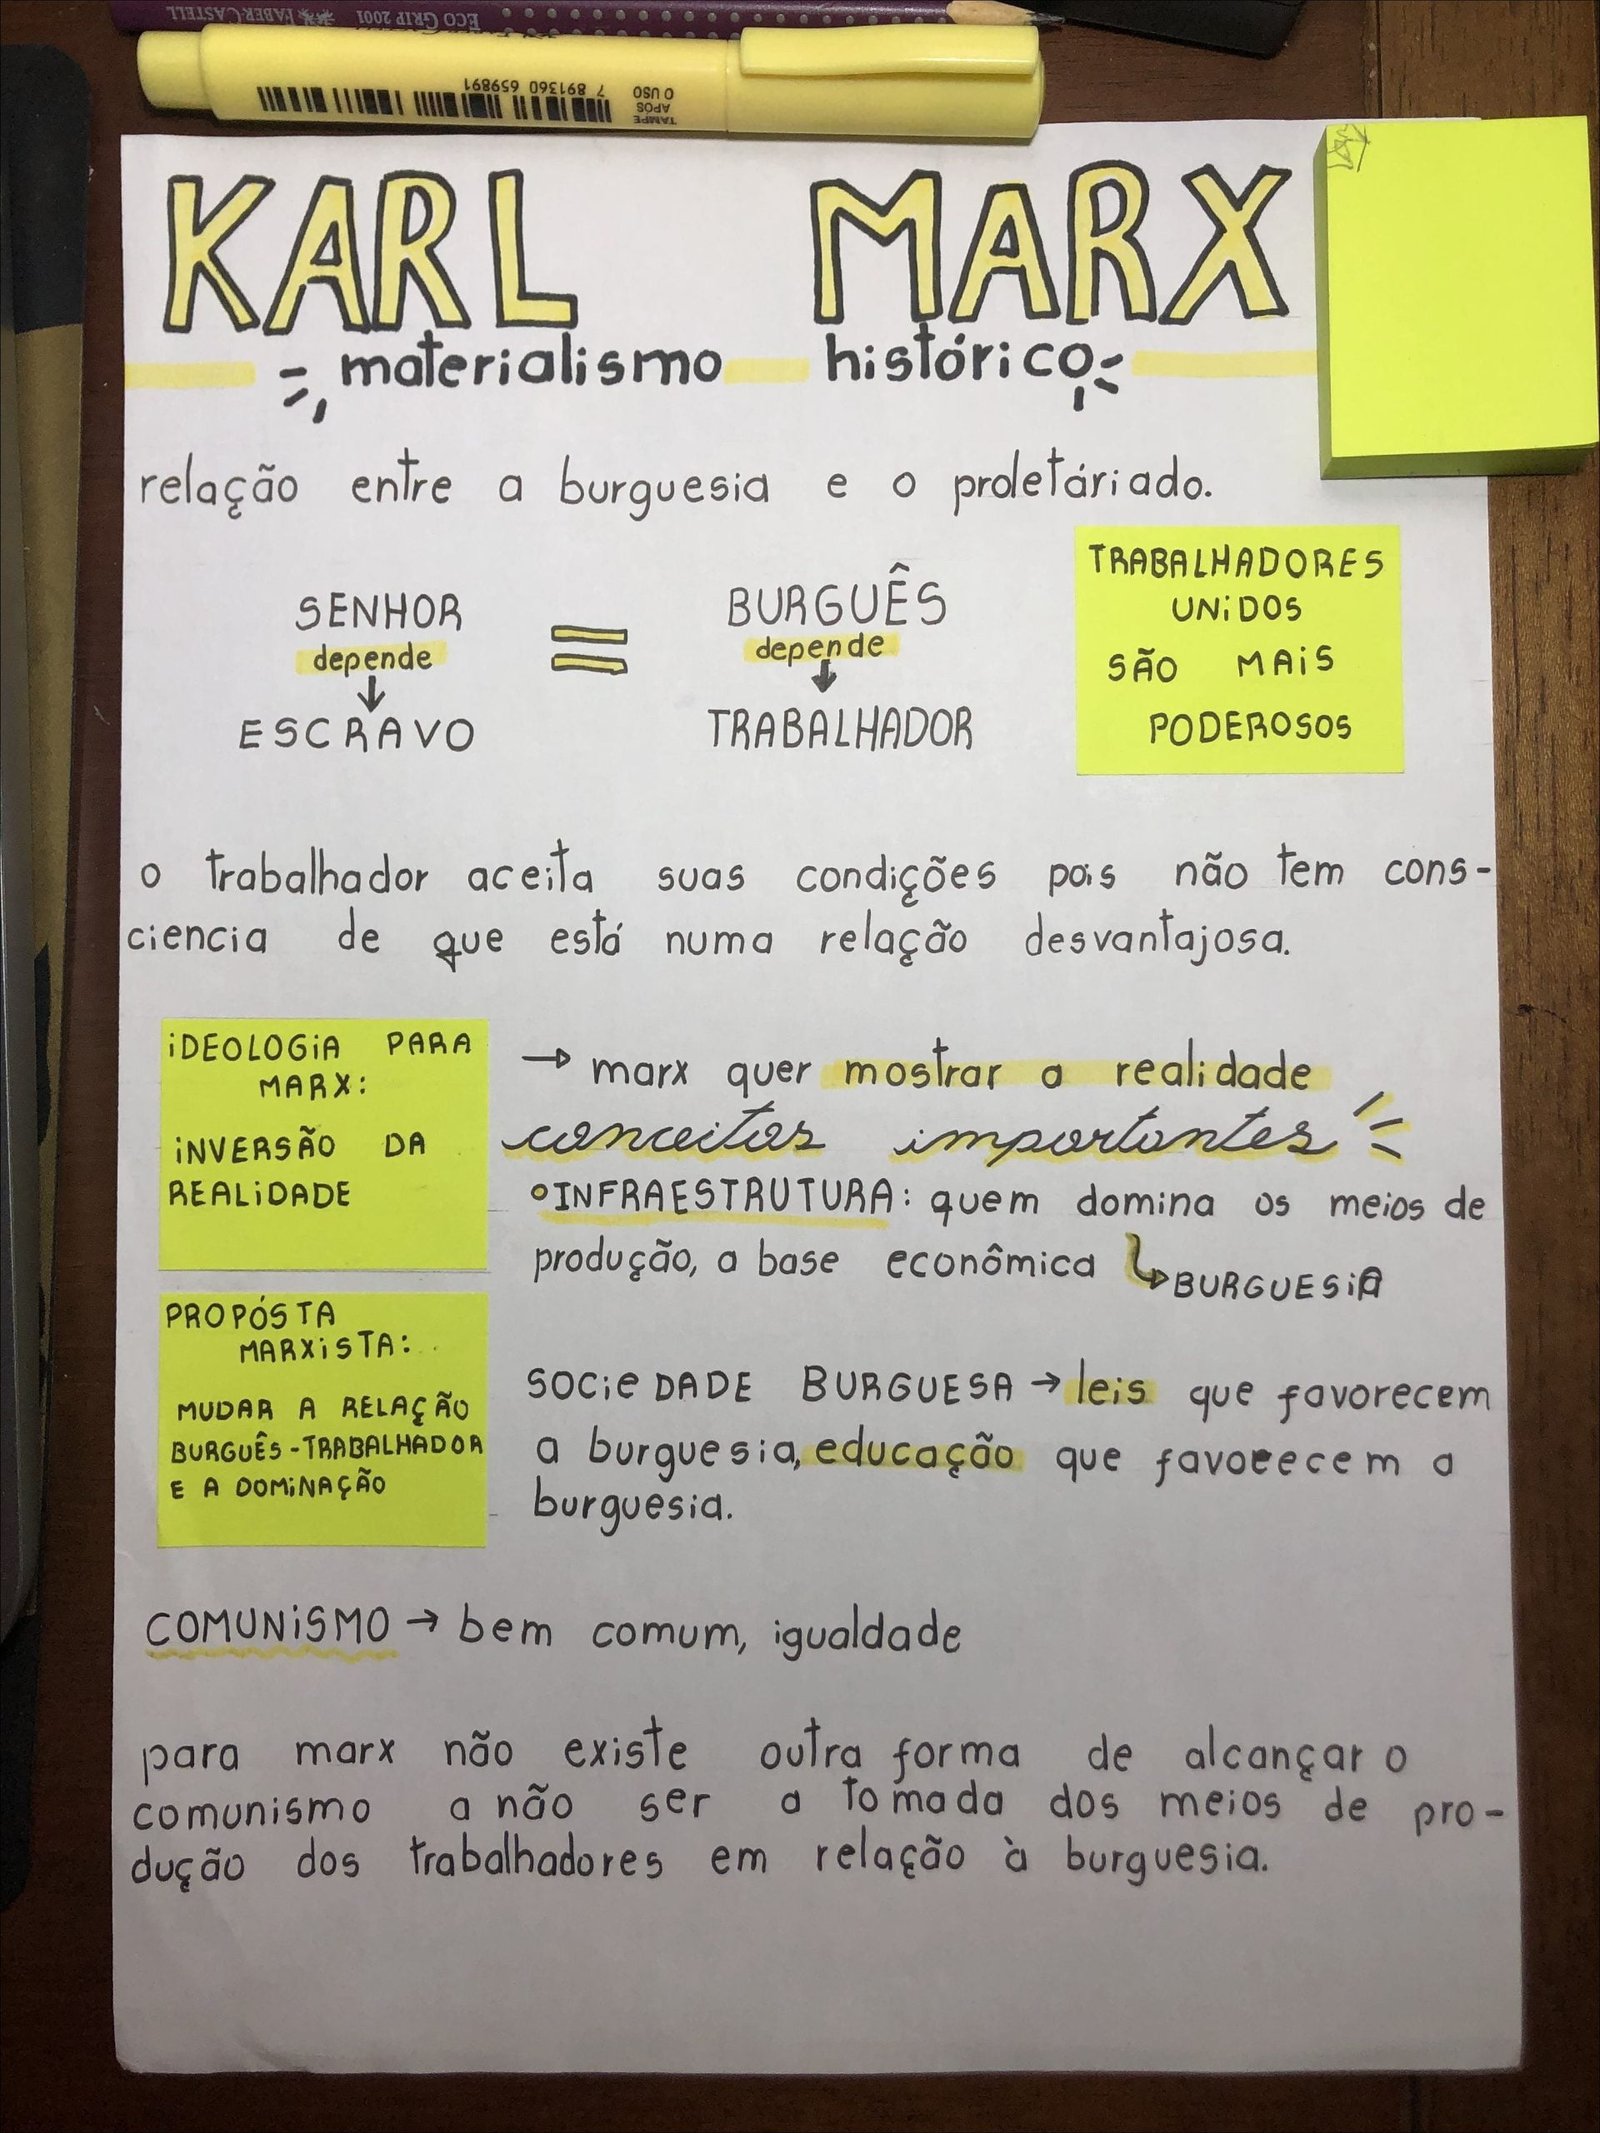 ECO GRIP 2001 FABER CASTELL
TAMPE
APÓS
O USO
7 891360 659891
KARL MARX
materialismo histórico
relação entre a burguesia e o proletáriado.
SENHOR = BURGUÊS
depende depende
ESCRAVO TRABALHADOR
TRABALHADORES
UNiDOS
SÃO MAiS
PODEROSOS
o trabalhador aceita suas condições pois não tem cons-
ciencia de que está numa relação desvantajosa.
iDEOLOGiA PARA
MARX:
iNVERSÃO DA
REALiDADE
→ marx quer mostrar a realidade
conceitos importantes
•INFRAESTRUTURA: quem domina os meios de
produção, a base econômica ↳BURGUESiA
PROPÓSTA
MARXiSTA:
MUDAR A RELAÇÃO
BURGUÊS-TRABALHADOR
E A DOMiNAÇÃO
SOCieDADE BURGUESA → leis que favorecem
a burguesia, educação que favorecem a
burguesia.
COMUNiSMO → bem comum, igualdade
para marx não existe outra forma de alcançar o
comunismo a não ser a tomada dos meios de pro-
dução dos trabalhadores em relação à burguesia.